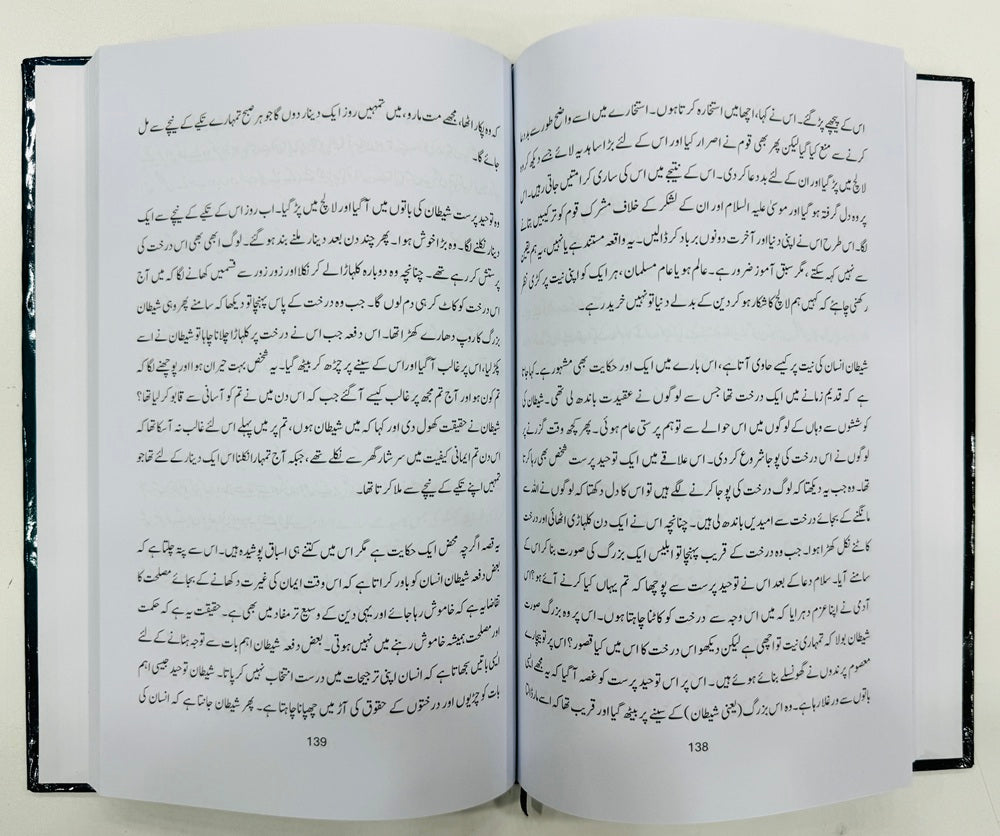 اس کے پیچھے پڑ گئے۔ اس نے کہا، اچھا میں استخارہ کرتا ہوں۔ استخارے میں اسے واضح طور سے بددعا
کرنے سے منع کیا گیا لیکن پھر بھی قوم نے اصرار کیا اور اس کے لئے بڑا سا ہدیہ لائے جسے دیکھ کر وہ
لالچ میں پڑ گیا اور ان کے لئے بددعا کر دی۔ اس کے نتیجے میں اس کی ساری کرامتیں جاتی رہیں۔ اس
پر وہ دل گرفتہ ہو گیا اور موسیٰ علیہ السلام اور ان کے لشکر کے خلاف مشرک قوم کو ترکیبیں بتانے
لگا۔ اس طرح اس نے اپنی دنیا اور آخرت دونوں برباد کر ڈالیں۔ یہ واقعہ مستند ہے یا نہیں، یہ ہم یقین
سے نہیں کہہ سکتے، مگر سبق آموز ضرور ہے۔ عالم ہو یا عام مسلمان، ہر ایک کو اپنی نیت پر کڑی نظر
رکھنی چاہئے کہ کہیں ہم لالچ کا شکار ہو کر دین کے بدلے دنیا تو نہیں خرید رہے۔
شیطان انسان کی نیت پر کیسے حاوی آتا ہے، اس بارے میں ایک اور حکایت بھی مشہور ہے۔ کہا جاتا
ہے کہ قدیم زمانے میں ایک درخت تھا جس سے لوگوں نے عقیدت باندھ لی تھی۔ شیطان کی
کوششوں سے وہاں کے لوگوں میں اس حوالے سے توہم پرستی عام ہوئی۔ پھر کچھ وقت گزرنے پر
لوگوں نے اس درخت کی پوجا شروع کر دی۔ اس علاقے میں ایک توحید پرست شخص بھی رہا کرتا
تھا۔ وہ جب یہ دیکھتا کہ لوگ درخت کی پوجا کرنے لگے ہیں تو اس کا دل دکھتا کہ لوگوں نے اللہ سے
مانگنے کے بجائے درخت سے امیدیں باندھ لی ہیں۔ چنانچہ اس نے ایک دن کلہاڑی اٹھائی اور درخت
کاٹنے نکل کھڑا ہوا۔ جب وہ درخت کے قریب پہنچا تو ابلیس ایک بزرگ کی صورت بنا کر اس کے
سامنے آیا۔ سلام دعا کے بعد اس نے توحید پرست سے پوچھا کہ تم یہاں کیا کرنے آئے ہو؟ اس
آدمی نے اپنا عزم دہرایا کہ میں اس وجہ سے درخت کو کاٹنا چاہتا ہوں۔ اس پر وہ بزرگ صورت
شیطان بولا کہ تمہاری نیت تو اچھی ہے لیکن دیکھو اس درخت کا اس میں کیا قصور؟ اس پر تو بیچارے
معصوم پرندوں نے گھونسلے بنائے ہوئے ہیں۔ اس پر اس توحید پرست کو غصہ آ گیا کہ یہ مجھے ایسی
باتوں سے ورغلا رہا ہے۔ وہ اس بزرگ (یعنی شیطان) کے سینے پر بیٹھ گیا اور قریب تھا کہ اسے مار ڈالتا
138
کہ وہ پکار اٹھا، مجھے مت مارو، میں تمہیں روز ایک دینار دوں گا جو ہر صبح تمہارے تکیے کے نیچے سے مل
جائے گا۔
وہ توحید پرست شیطان کی باتوں میں آ گیا اور لالچ میں پڑ گیا۔ اب روز اس کے تکیے کے نیچے سے ایک
دینار نکلنے لگا۔ وہ بڑا خوش ہوا۔ پھر چند دن بعد دینار ملنے بند ہو گئے۔ لوگ ابھی بھی اس درخت کی
پرستش کر رہے تھے۔ چنانچہ وہ دوبارہ کلہاڑا لے کر نکلا اور زور زور سے قسمیں کھانے لگا کہ میں آج
اس درخت کو کاٹ کر ہی دم لوں گا۔ جب وہ درخت کے پاس پہنچا تو دیکھا کہ سامنے پھر وہی شیطان
بزرگ کا روپ دھارے کھڑا تھا۔ اس دفعہ جب اس نے درخت پر کلہاڑا چلانا چاہا تو شیطان نے اسے
پکڑ لیا، اس پر غالب آ گیا اور اس کے سینے پر چڑھ کر بیٹھ گیا۔ یہ شخص بہت حیران ہوا اور پوچھنے لگا کہ
تم کون ہو اور آج تم مجھ پر غالب کیسے آ گئے جب کہ اس دن میں نے تم کو آسانی سے قابو کر لیا تھا؟
شیطان نے حقیقت کھول دی اور کہا کہ میں شیطان ہوں، تم پر میں پہلے اس لئے غالب نہ آ سکا تھا کہ
اس دن تم ایمانی کیفیت میں سرشار گھر سے نکلے تھے، جبکہ آج تمہارا نکلنا اس ایک دینار کے لئے تھا جو
تمہیں اپنے تکیے کے نیچے سے ملا کرتا تھا۔
یہ قصہ اگرچہ محض ایک حکایت ہے مگر اس میں کتنے ہی اسباق پوشیدہ ہیں۔ اس سے پتہ چلتا ہے کہ
بعض دفعہ شیطان انسان کو باور کراتا ہے کہ اس وقت ایمان کی غیرت دکھانے کے بجائے مصلحت کا
تقاضا یہ ہے کہ خاموش رہا جائے اور یہی دین کے وسیع تر مفاد میں بھی ہے۔ حقیقت یہ ہے کہ حکمت
اور مصلحت ہمیشہ خاموش رہنے میں نہیں ہوتی۔ بعض دفعہ شیطان اہم بات سے توجہ ہٹانے کے لئے
ایسی باتیں سجھاتا ہے کہ انسان اپنی ترجیحات میں درست انتخاب نہیں کر پاتا۔ شیطان توحید جیسی اہم
بات کو چڑیوں اور درختوں کے حقوق کی آڑ میں چھپانا چاہتا ہے۔ پھر شیطان جانتا ہے کہ انسان کی
139